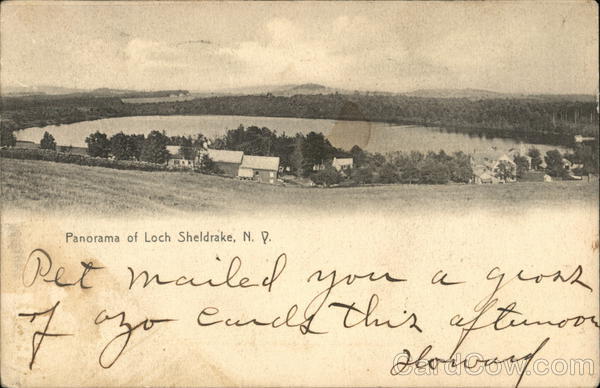 Panorama of Loch Sheldrake, N. Y.
Pet mailed you a gross
of azo cards this afternoon
Howard
CardCow.com